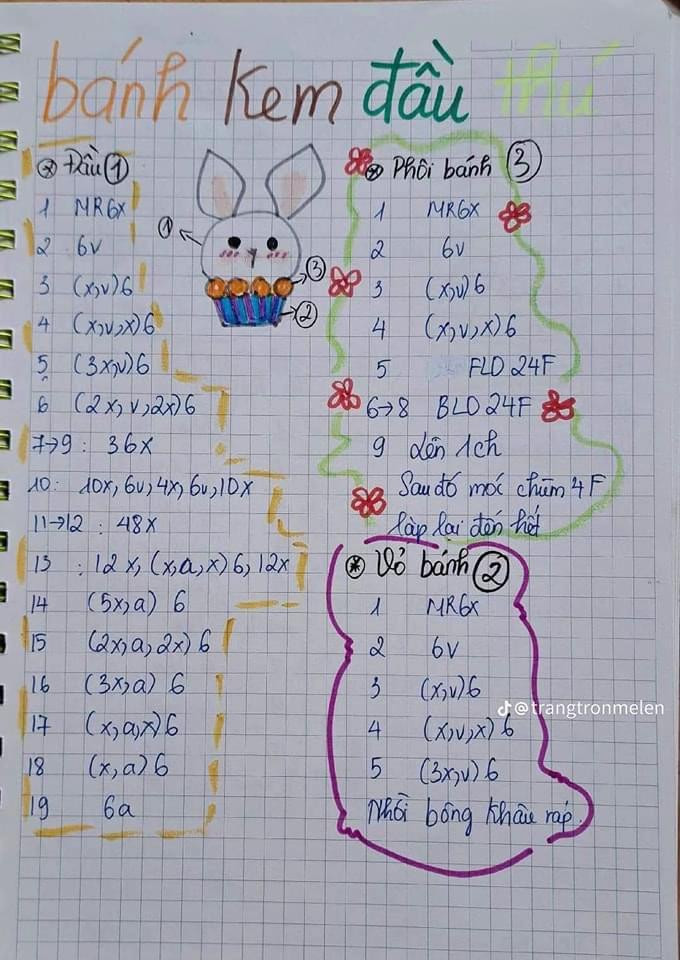 bánh kem đầu thú
* Đầu 1
1 MR6X
2 6V
3 (x,v)6
4 (x,v,x)6
5 (3x,v)6
6 (2x,v,2x)6
7→9: 36x
10: 10x, 6v, 4x, 6v, 10x
11→12: 48x
13: 12x, (x,a,x)6, 12x
14 (5x,a) 6
15 (2x,a,2x) 6
16 (3x,a) 6
17 (x,a,x)6
18 (x,a)6
19 6a
1
3
2
* Phôi bánh 3
1 MR6X
2 6v
3 (x,v)6
4 (x,v,x)6
5 FLO 24F
6→8 BLO 24F
9 Lên 1ch
Sau đó móc chùm 4F
lặp lại đến hết
* Vỏ bánh 2
1 MR6X
2 6v
3 (x,v)6
4 (x,v,x)6
5 (3x,v)6
Nhồi bông khâu ráp.
@trangtronmelen